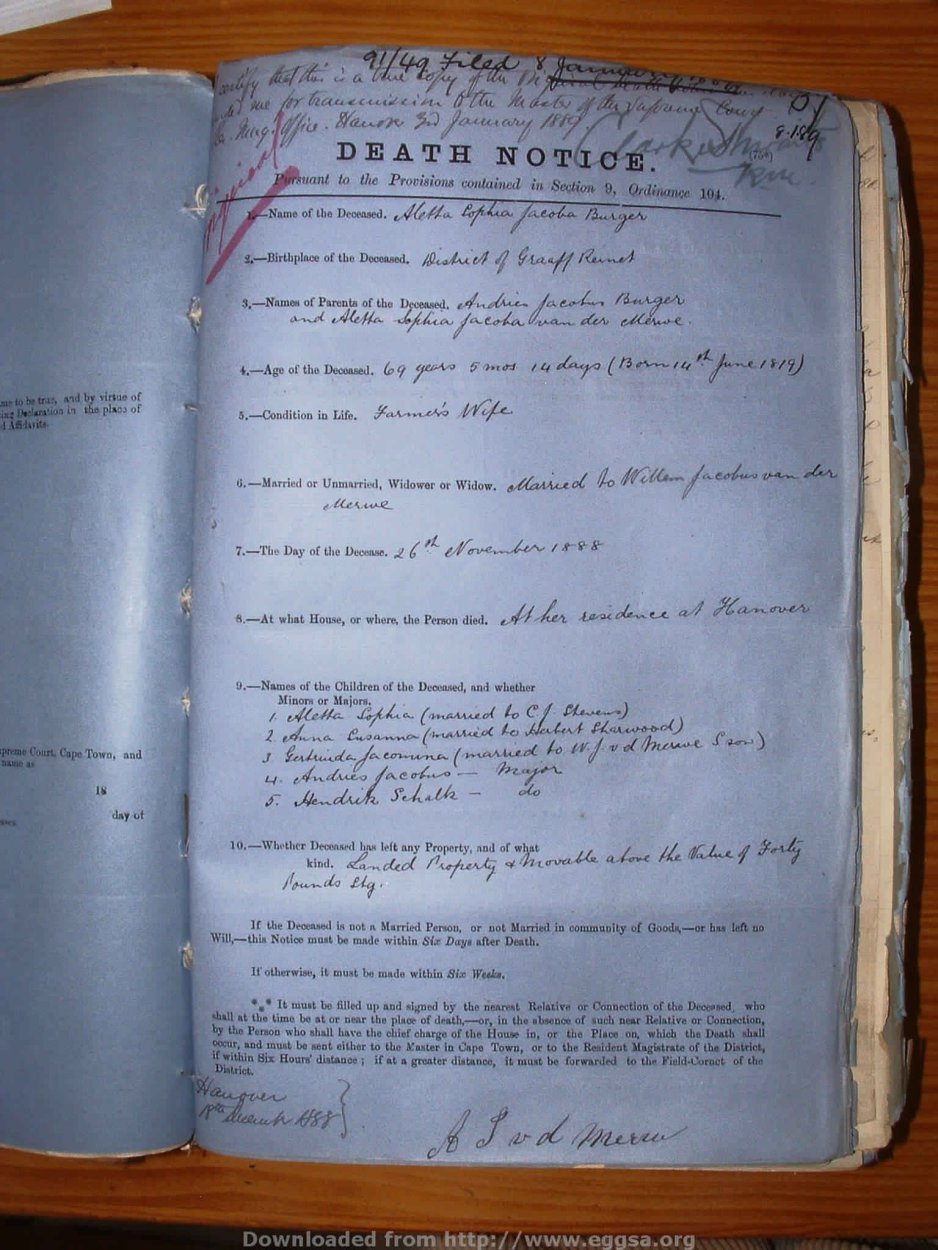 91/49 Filed 8 January
certify that this is a true copy of the
me for transmission to the Master of the Supreme Court
Mag. Office. Hanover 3rd January 1889.
8.1.89
DEATH NOTICE.
(758)
Pursuant to the Provisions contained in Section 9, Ordinance 104.
Original
1.—Name of the Deceased. Aletta Sophia Jacoba Burger
2.—Birthplace of the Deceased. District of Graaff Reinet
3.—Names of Parents of the Deceased. Andries Jacobus Burger
and Aletta Sophia Jacoba van der Merwe.
4.—Age of the Deceased. 69 years 5 mos 14 days (Born 14th June 1819)
5.—Condition in Life. Farmer's Wife
6.—Married or Unmarried, Widower or Widow. Married to Willem Jacobus van der
Merwe
7.—The Day of the Decease. 26th November 1888
8.—At what House, or where, the Person died. At her residence at Hanover
9.—Names of the Children of the Deceased, and whether
Minors or Majors.
1. Aletta Sophia (married to C J. Stevens)
2. Anna Susanna (married to Herbert Sharwood)
3 Gertruida Jacomina (married to W. J. v d Merwe S son)
4. Andries Jacobus — Major
5. Hendrik Schalk — do
10.—Whether Deceased has left any Property, and of what
kind. Landed Property & Movable above the Value of Forty
Pounds Stg.
If the Deceased is not a Married Person, or not Married in community of Goods,—or has left no
Will,—this Notice must be made within Six Days after Death.
If otherwise, it must be made within Six Weeks.
*** It must be filled up and signed by the nearest Relative or Connection of the Deceased, who
shall at the time be at or near the place of death,—or, in the absence of such near Relative or Connection,
by the Person who shall have the chief charge of the House in, or the Place on, which the Death shall
occur, and must be sent either to the Master in Cape Town, or to the Resident Magistrate of the District,
if within Six Hours' distance; if at a greater distance, it must be forwarded to the Field-Cornet of the
District.
Hanover
18th December 1888
A J v d Merwe
to be true, and by virtue of
Declaration in the place of
Affidavits.
Supreme Court, Cape Town, and
name as
18
day of
Downloaded from http://www.eggsa.org